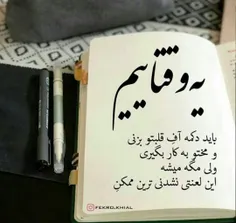 یه وقتاییم
باید دکمه آفِ قلبتو بزنی
و مختو به کار بگیری
ولی مگه میشه
این لعنتی نشدنی ترین ممکنِ
FEKRO.KHIAL